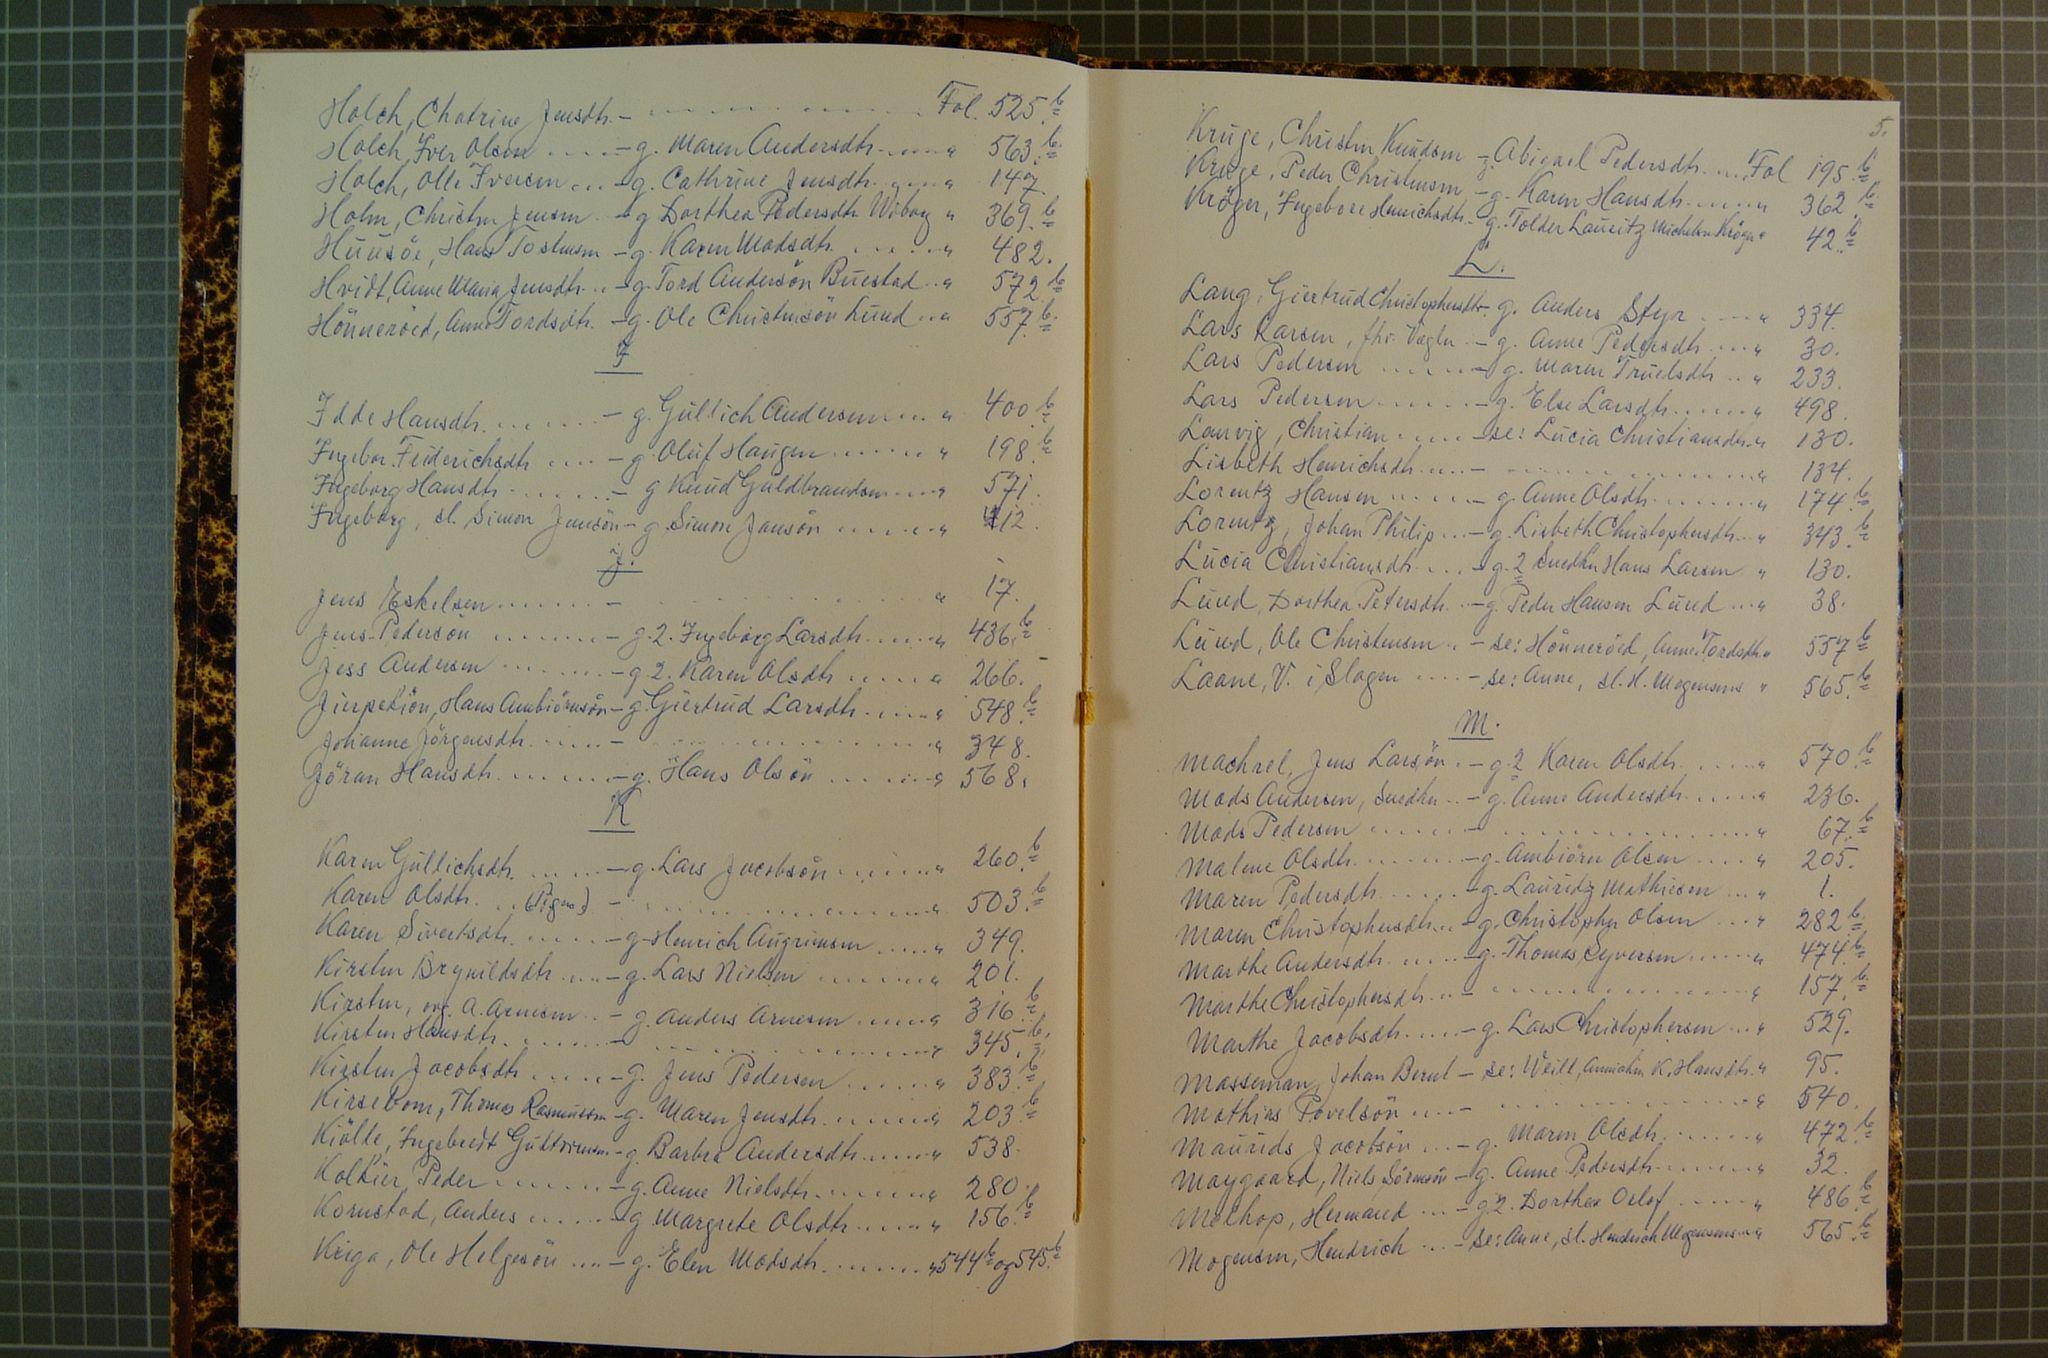 4
Holch, Chatrine Jensdtr. - Fol. 525.b
Holch, Iver Olsen - g. Maren Andersdtr. " 563.b
Holch, Olle Iversen - g. Cathrine Jensdtr. " 147.
Holm, Christen Jensen - g Dorthea Pedersdtr Wiborg " 369.b
Huusöe, Hans Tostensen - g. Karen Madsdtr. " 482.
Hvidt, Anne Maria Jensdtr. - g. Tord Andersön Buestad " 572.b
Hönneröed, Anne Tordsdtr. - g. Ole Christensön Lund " 557.b
I
Idde Hansdtr. - g. Gullich Andersen " 400.b
Ingebor. Friderichsdtr - g. Oluf Haugen " 198.b
Ingeborg Hansdtr - g Knud Guldbrandsen " 571.
Ingeborg, sl. Simon Jansön - g. Simon Jansön " 412.
J.
Jens Eskelsen - " 17.
Jens Pedersön - g. 2. Ingeborg Larsdtr. " 436.b
Jess Andersen - g 2. Karen Olsdtr " 266.
Jierpetiön, Hans Ambiörnsön - g. Giertrud Larsdtr. " 548.b
Johanne Jörgensdtr. - " 348.
Jöran Hansdtr. - g. Hans Olsön " 568.
K
Karen Gullichsdtr. - g. Lars Jacobsön " 260.b
Karen Olsdtr. (Pigen) - " 503.b
Karen Sivertsdtr. - g. Henrich Augrimsen " 349.
Kirsten Brynildsdtr. - g. Lars Nielsen " 201.
Kirsten, A. Arnesen - g. Anders Arnesen " 316.b
Kirsten Hansdtr. - " 345.b
Kirsten Jacobsdtr - g. Jens Pedersen " 383.b
Kirsebom, Thomas Rasmussen - g. Maren Jensdtr. " 203.b
Kiölte, Ingebredt Guttormsen - g. Barbra Andersdtr. " 538.
Kolkier, Peder - g. Anne Nielsdtr. " 280.
Kornstad, Anders - g Margrete Olsdtr. " 156.b
Kriga, Ole Helgesön - g. Elen Madsdtr. " 544b og 545.b
5.
Kruge, Christen Knudsen - g. Abigael Pedersdtr. Fol 195.b
Kruge, Peder Christensen - g. Karen Hansdtr. " 362.b
Kröger, Ingeborg Henrichsdtr. - g. Tolder Lauritz Michelsen Kröger " 42.b
L.
Lang, Giertrud Christophersdtr. - g. Anders Styr " 334.
Lars Larsen, fhv. Vægter - g. Anne Pedersdtr. " 30.
Lars Pedersen - g. Maren Truelsdtr " 233.
Lars Pedersen - g. Else Larsdtr. " 498.
Laurvig, Christian - se: Lucia Christiansdtr. " 130.
Lisbeth Henrichsdtr. - " 134.
Lorentz Hansen - g. Anne Olsdtr. " 174.b
Lorentz, Johan Philip - g. Lisbeth Christophersdtr. " 343.b
Lucia Christiansdtr. - g. 2 Snedker Hans Larsen " 130.
Lund, Dorthea Petersdtr. - g. Peder Hansen Lund " 38.
Lund, Ole Christensen - se: Hönneröed, Anne Tordsdtr " 557.b
Laane, V. i Slagen - se: Anne, sl. H. Mogensens " 565.b
M.
Machrel, Jens Larsön. - g. 2 Karen Olsdtr. " 570.b
Mads Andersen, Snedker - g. Anne Andersdtr. " 236.
Mads Pedersen - " 67.b
Malene Olsdtr. - g. Ambiörn Olsen " 205.
Maren Pedersdtr. - g. Lauridz Mathiesen " 1.
Maren Christophersdtr. - g. Christopher Olsen " 282.b
Marthe Andersdtr. - g. Thomas Syversen " 474.b
Marthe Christophersdtr. - " 157.b
Marthe Jacobsdtr. - g. Lars Christophersen " 529.
Masseman, Johan Bernt - se: Weilt, K. Hansdtr. " 95.
Mathias Povelsön - " 540.
Maurids Jacobsön - g. Maren Olsdtr. " 472.b
Maygaard, Niels Sörensön - g. Anne Pedersdtr. " 32.
Melhop, Hermand - g. 2. Dorthea Orlof " 486.b
Mogensen, Hendrich - se: Anne, sl. Hendrich Mogensens " 565.b